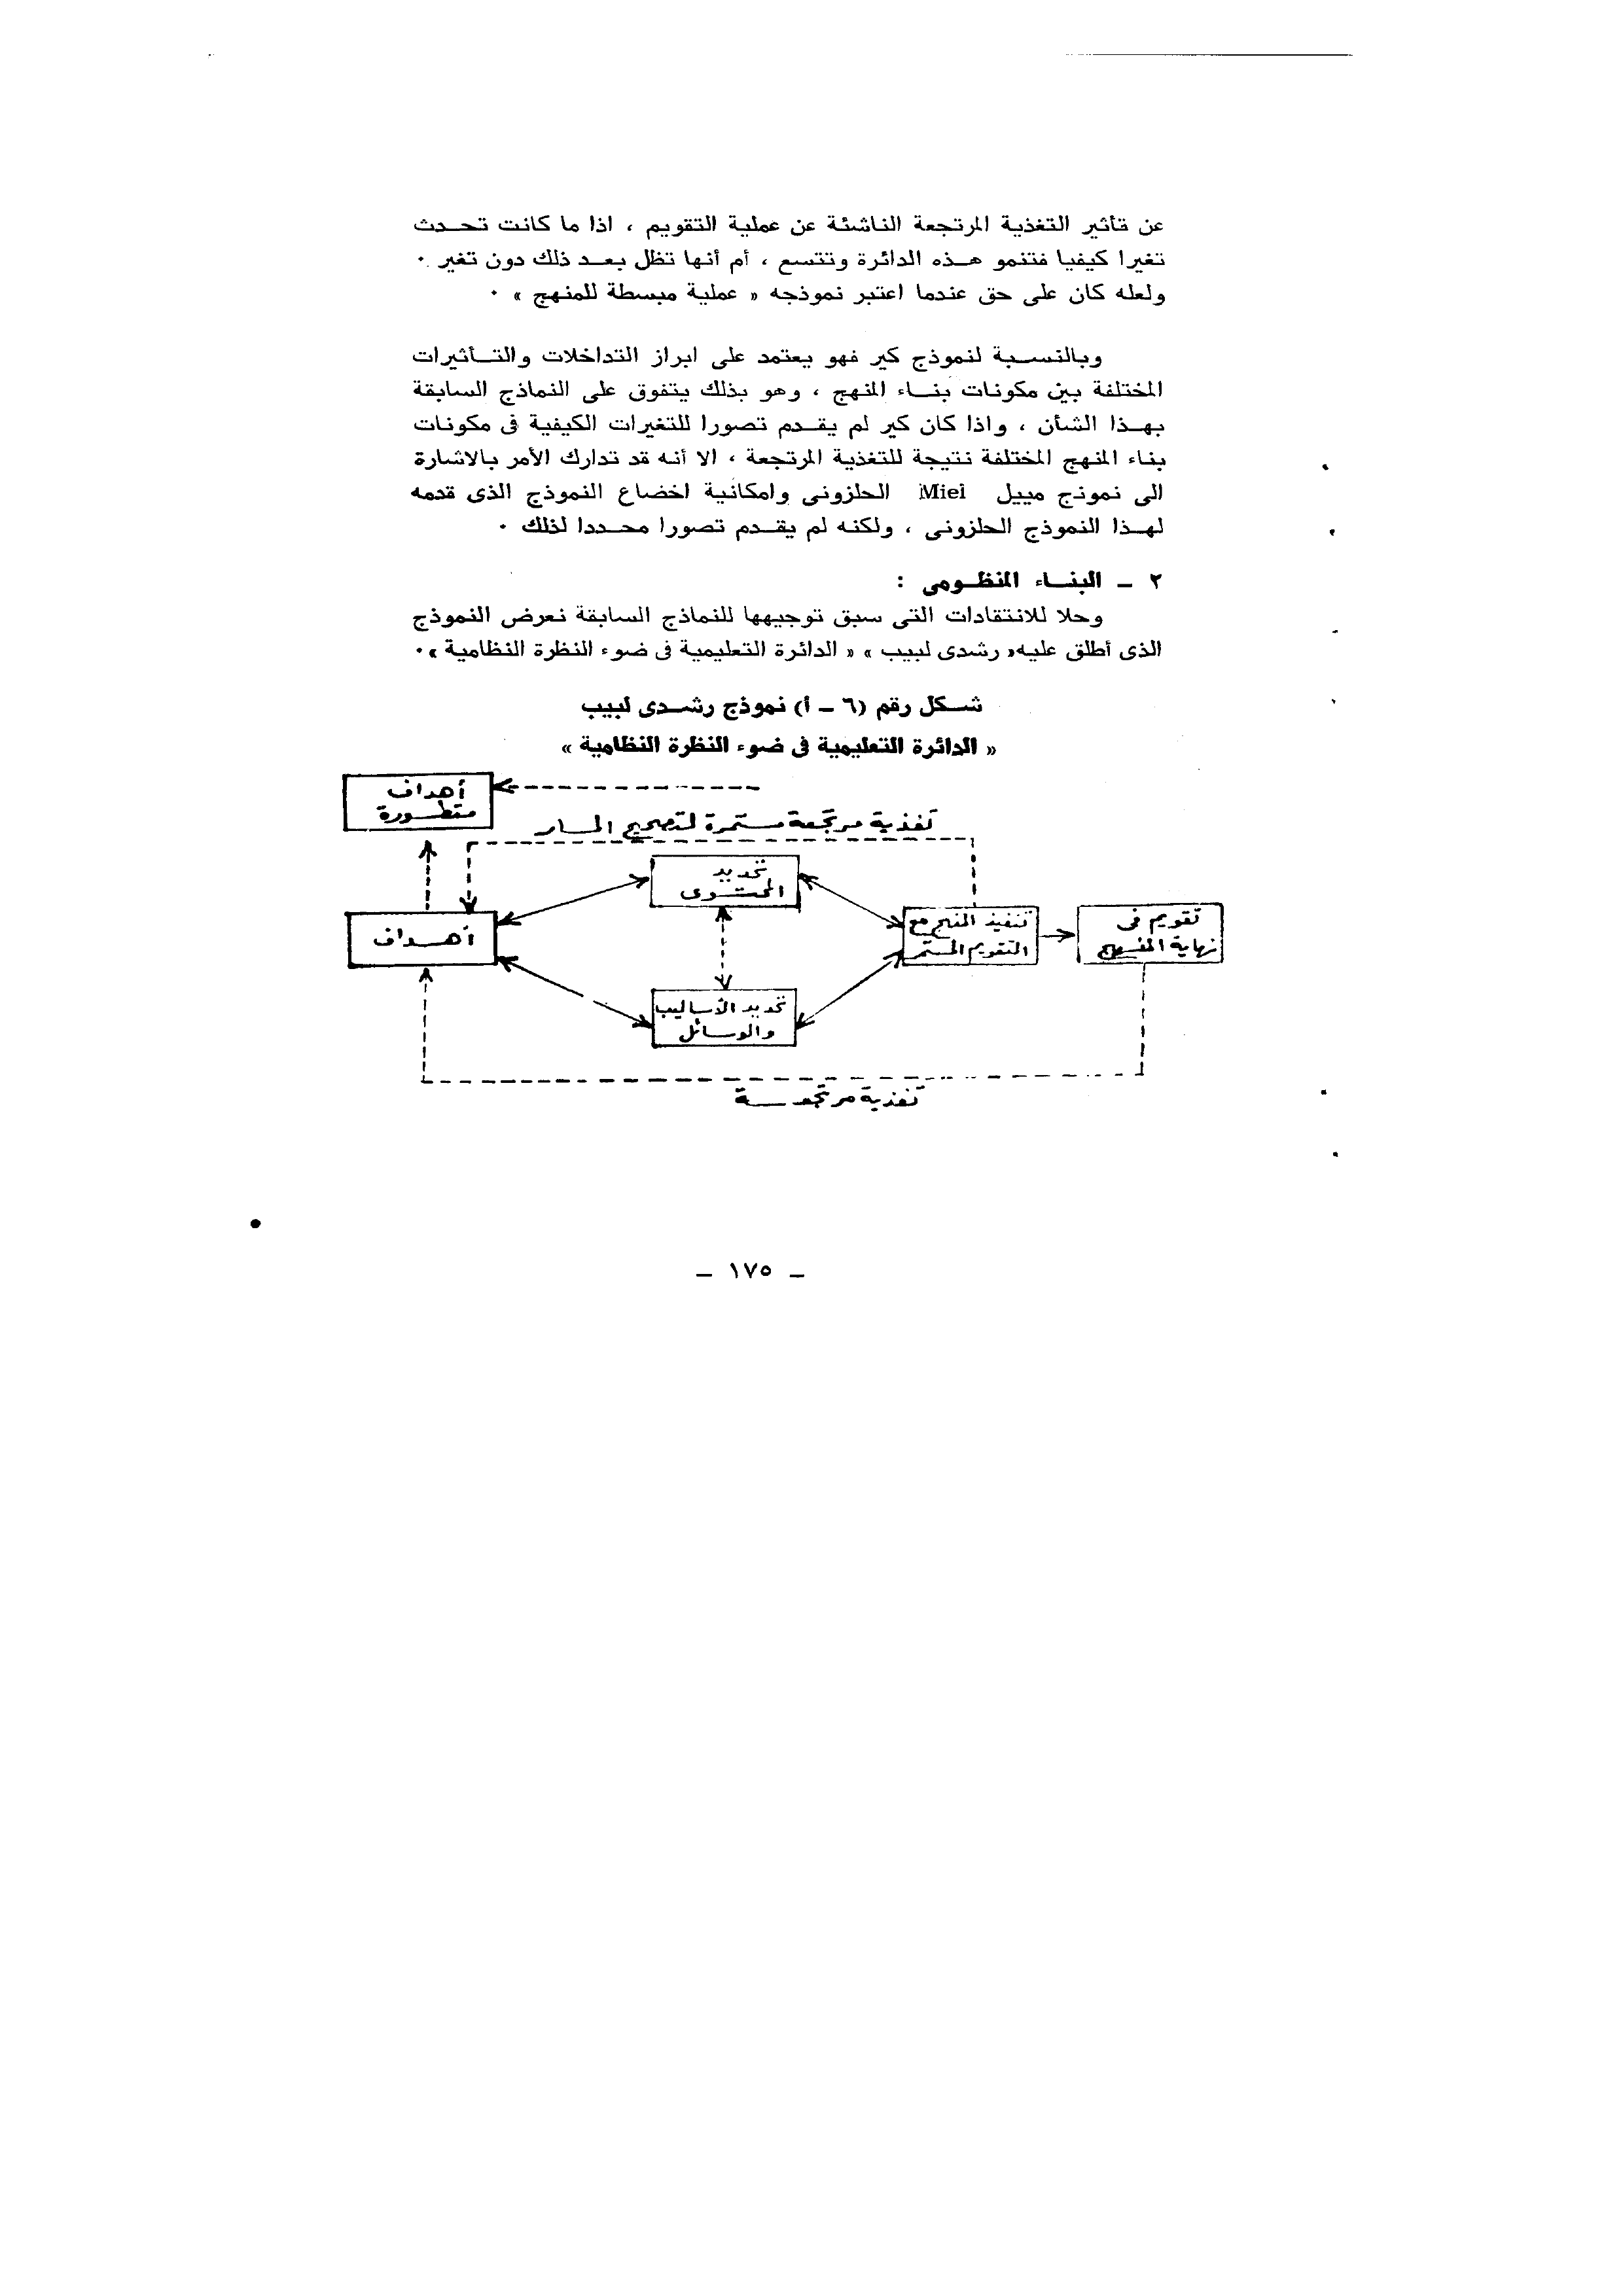 عن تأثير التغذية المرتجعة الناشئة عن عملية التقويم ، اذا ما كانت تحدث
تغيرا كيفيا فتنمو هذه الدائرة وتتسع ، أم أنها تظل بعد ذلك دون تغير ٠
ولعله كان على حق عندما اعتبر نموذجه « عملية مبسطة للمنهج » ٠
وبالنسبة لنموذج كير فهو يعتمد على ابراز التداخلات والتأثيرات
المختلفة بين مكونات بناء المنهج ، وهو بذلك يتفوق على النماذج السابقة
بهذا الشأن ، واذا كان كير لم يقدم تصورا للتغيرات الكيفية فى مكونات
بناء المنهج المختلفة نتيجة للتغذية المرتجعة ، الا أنه قد تدارك الأمر بالاشارة
الى نموذج مييل Miel الحلزونى وامكانية اخضاع النموذج الذى قدمه
لهذا النموذج الحلزونى ، ولكنه لم يقدم تصورا محددا لذلك ٠
٢ – البناء المنظومى :
وحلا للانتقادات التى سبق توجيهها للنماذج السابقة نعرض النموذج
الذى أطلق عليه « رشدى لبيب » « الدائرة التعليمية فى ضوء النظرة النظامية » ٠
شكل رقم (٦ – أ) نموذج رشدى لبيب
« الدائرة التعليمية فى ضوء النظرة النظامية »
أهداف
متطورة
تغذية مرتجعة مستمرة لتصحيح المسار
تحديد
المحتوى
أهداف
تنفيذ المنهج مع
التقويم المستمر
تقويم فى
نهاية المنهج
تحديد الأساليب
والوسائل
تغذية مرتجعة
– ١٧٥ –